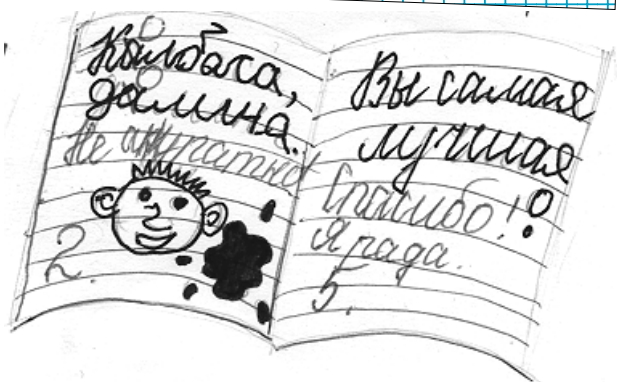 Калбаса,
далина.
Не аккуратно!
2.
Вы самая
лучшая!
Спасибо!
Я рада.
5.